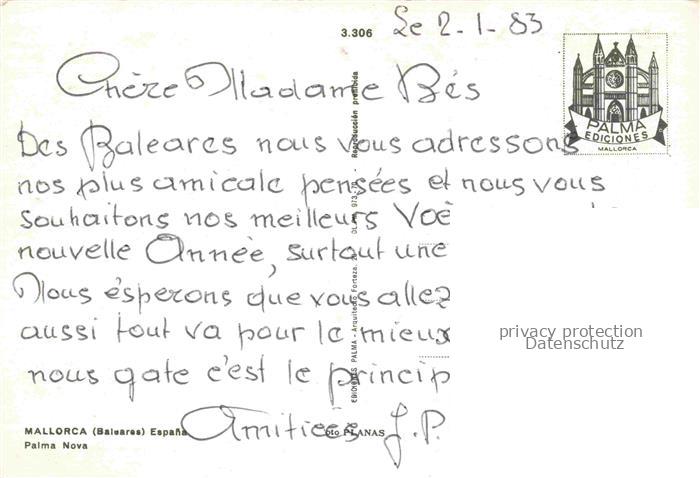 3.306
Le 2-1-83
Chère Madame Bés
Des Baleares nous vous adressons
nos plus amicale pensées et nous vous
souhaitons nos meilleurs Voe
nouvelle Année, surtout une
Nous ésperons que vous allez
aussi tout va pour le mieux
nous gate c'est le princip
Amitiées J.P.
PALMA
EDICIONES
MALLORCA
Reproducción prohibida
EDICIONES PALMA - Arquitecto Forteza,
MALLORCA (Baleares) España
Palma Nova
Foto PLANAS
privacy protection
Datenschutz